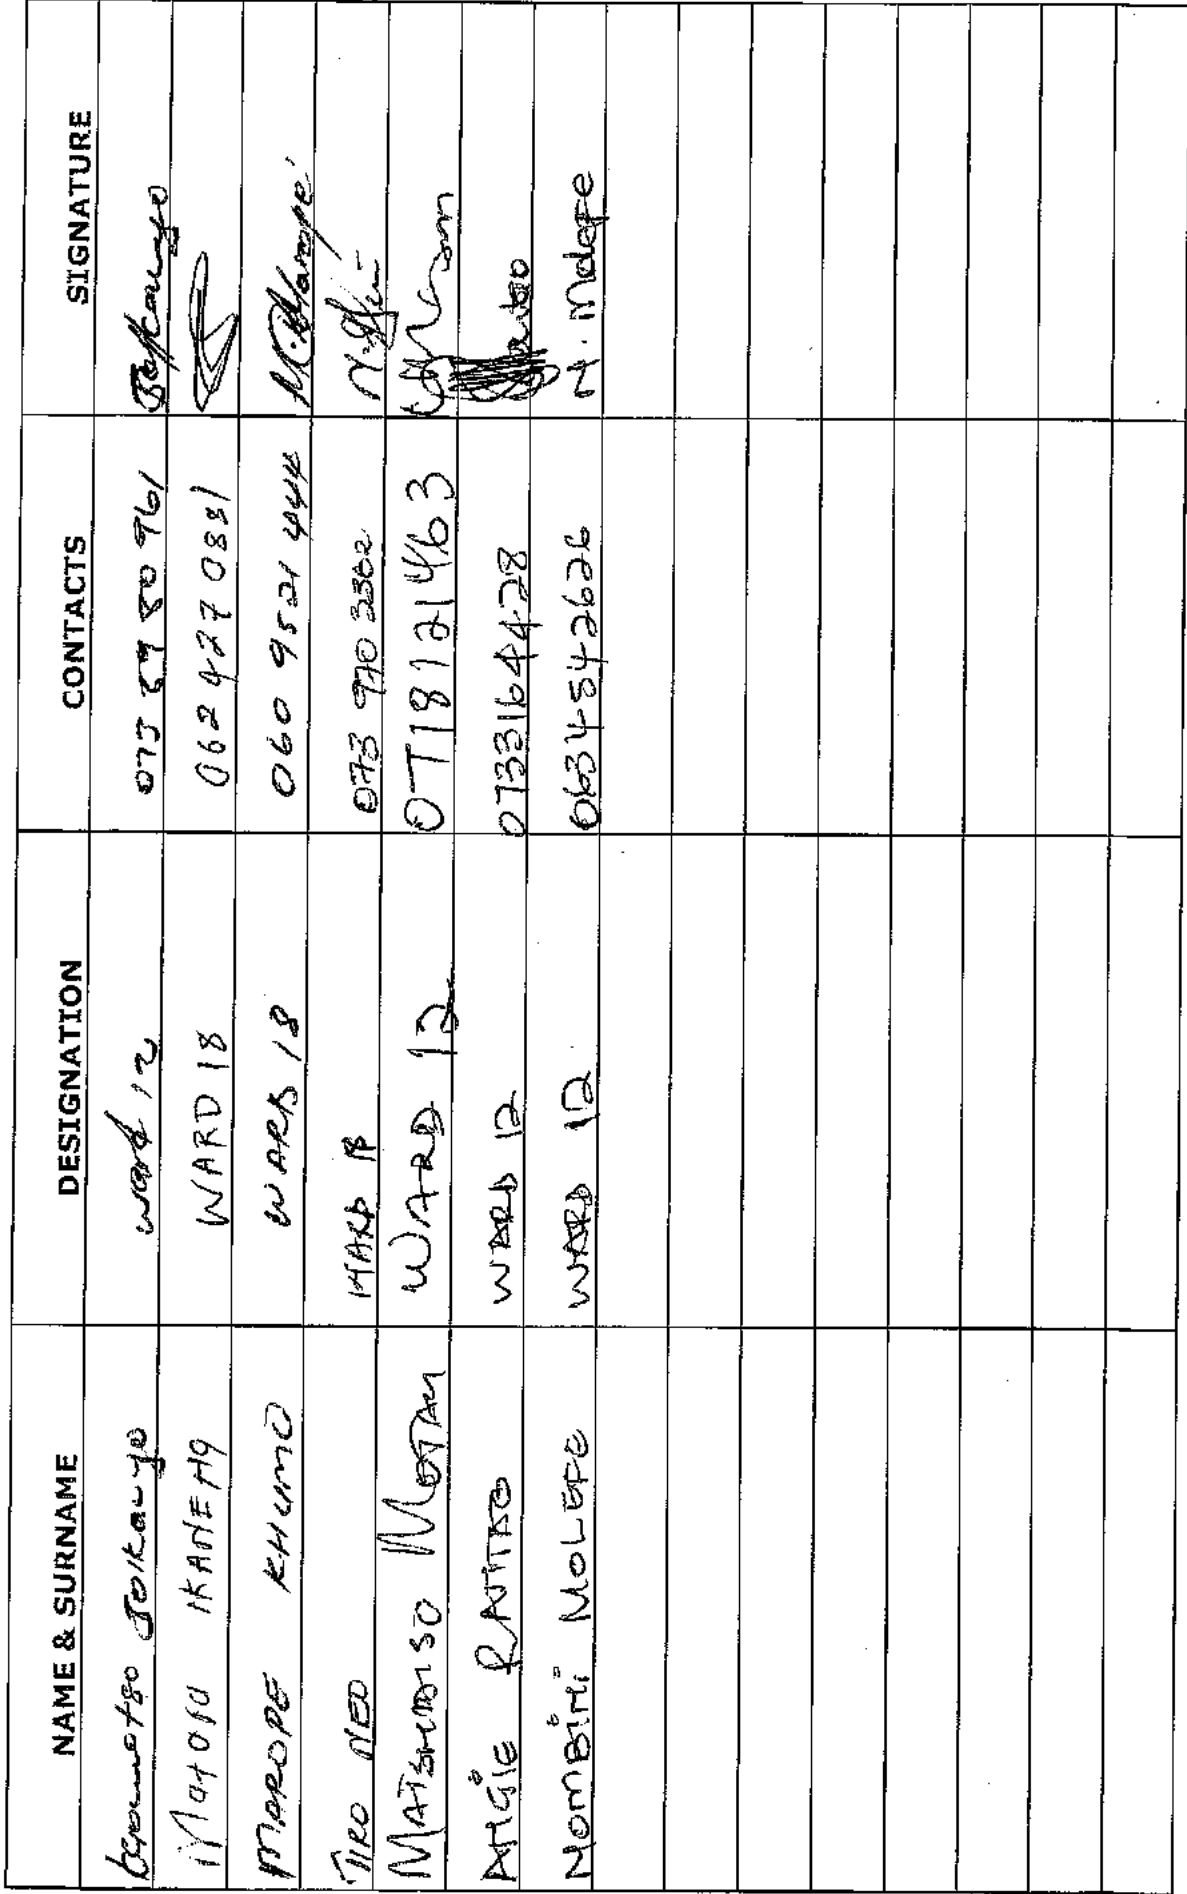 NAME & SURNAME DESIGNATION CONTACTS SIGNATURE
Jolkanyo ward 12
IKANENG WARD 18 062 427 0881
MAROPE KHUMO WARD 18 060 9521 444 Marope
TIRO NEO WARD 18 073 970 2362
MATSHIDISO WARD 12 0718121463
ANGIE RANTAO WARD 12 0733164428
NOMBINI MOLEFE WARD 12 0634542626 N. Molefe